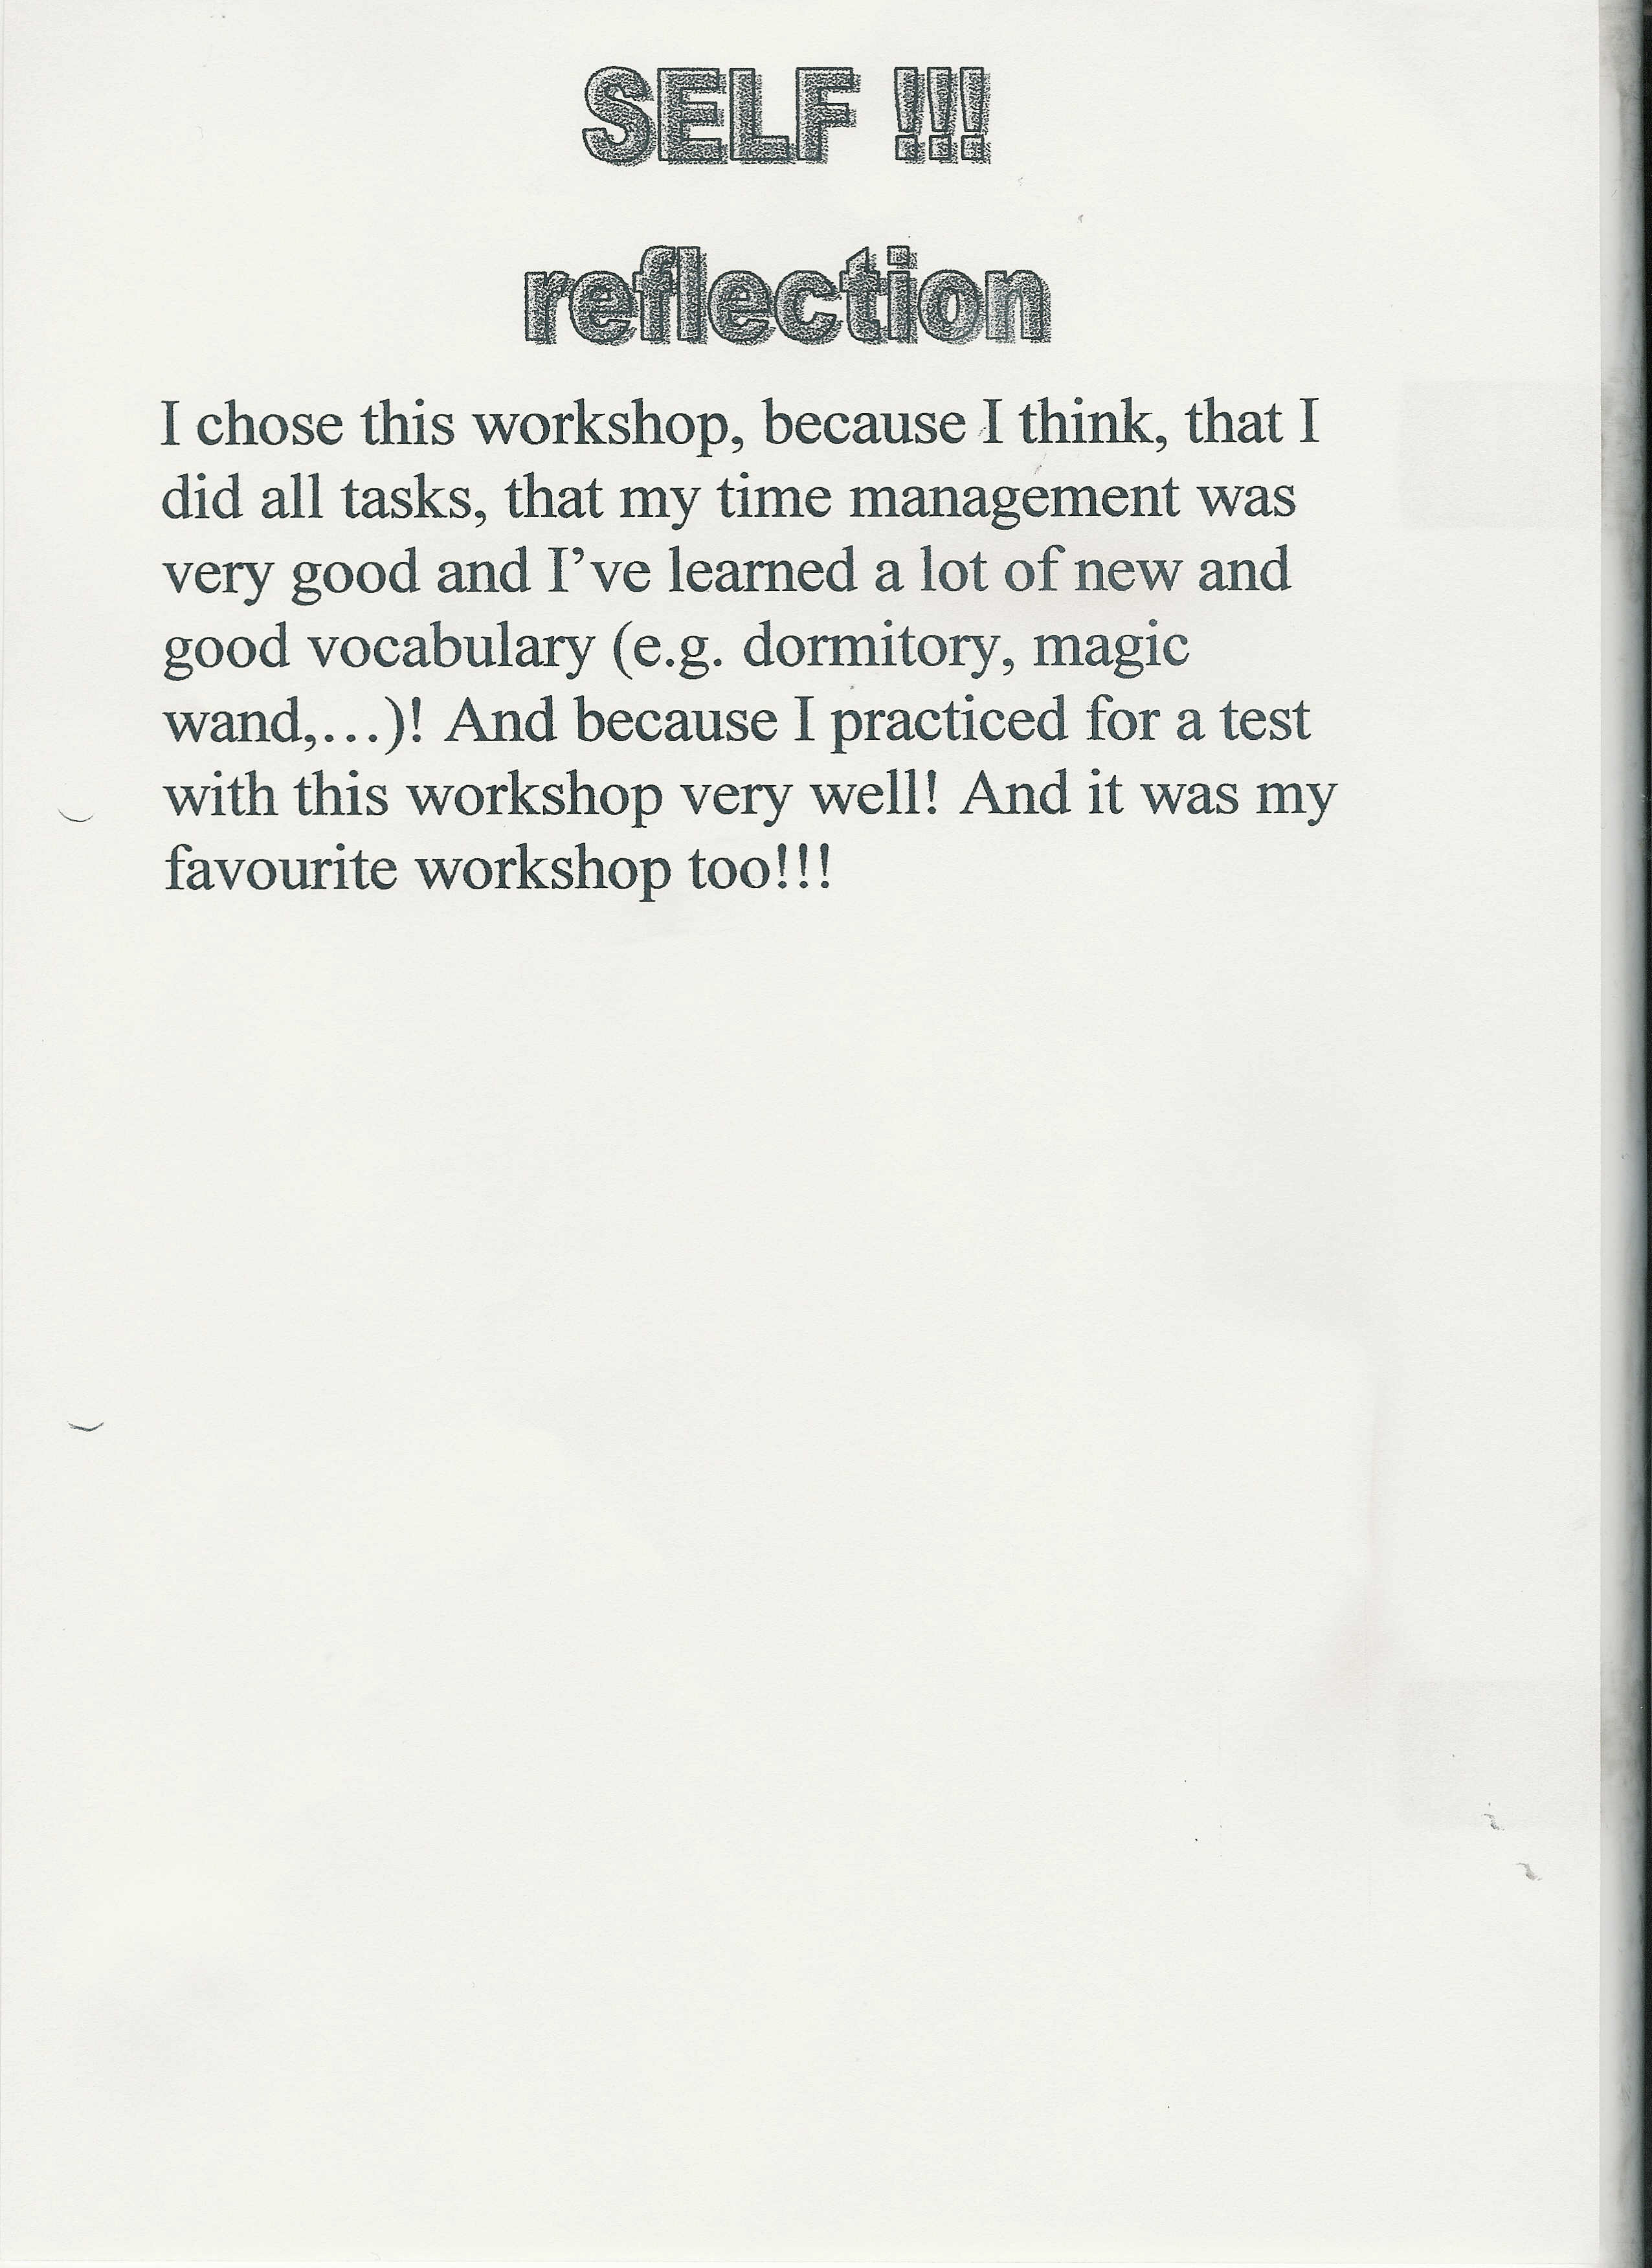 SELF !!!
reflection
I chose this workshop, because I think, that I
did all tasks, that my time management was
very good and I’ve learned a lot of new and
good vocabulary (e.g. dormitory, magic
wand,…)! And because I practiced for a test
with this workshop very well! And it was my
favourite workshop too!!!